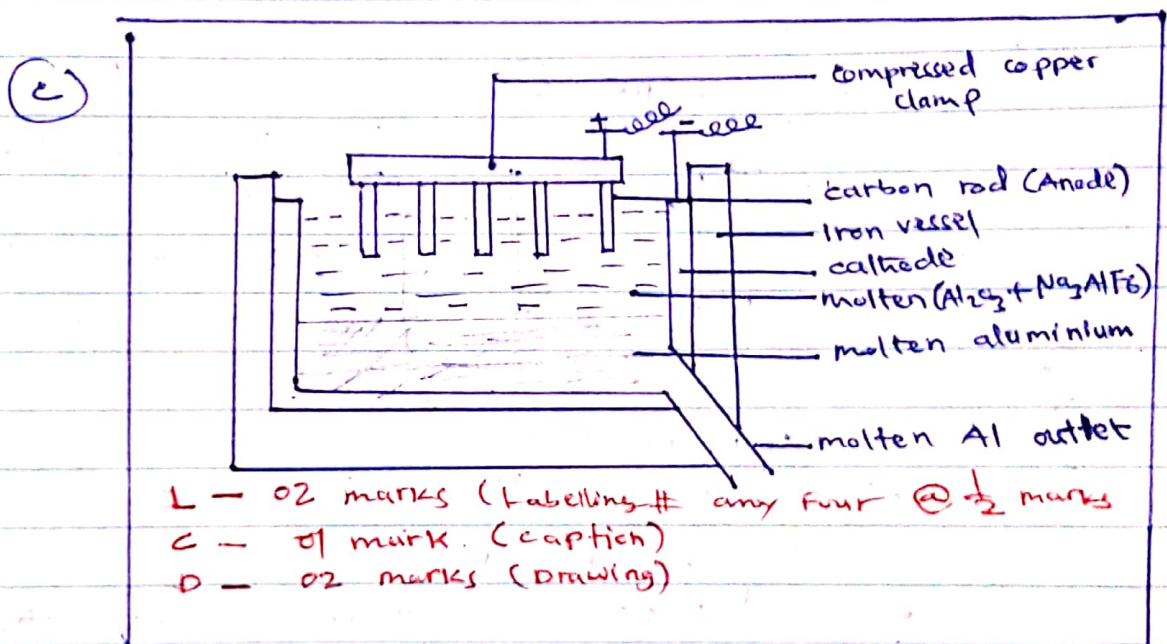 c
compressed copper
clamp
+ -
carbon rod (Anode)
Iron vessel
cathede
molten (Al₂O₃ + Na₃AlF6)
molten aluminium
molten Al outlet
L - 02 marks (Labelling # any four @ ½ marks
C - 01 mark. (caption)
D - 02 marks (Drawing)